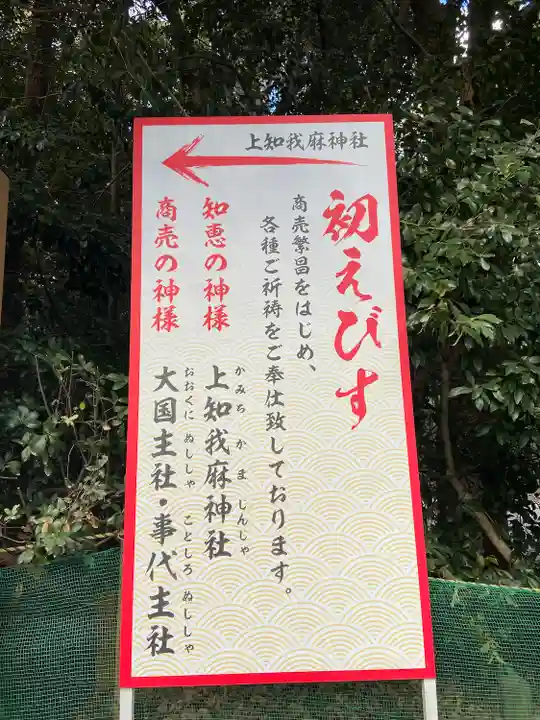 上知我麻神社
初えびす
商売繁昌をはじめ、
各種ご祈祷をご奉仕致しております。
知恵の神様 上知我麻神社
かみちかましんしゃ
商売の神様 大国主社・事代主社
おおくにぬししゃ ことしろぬししゃ